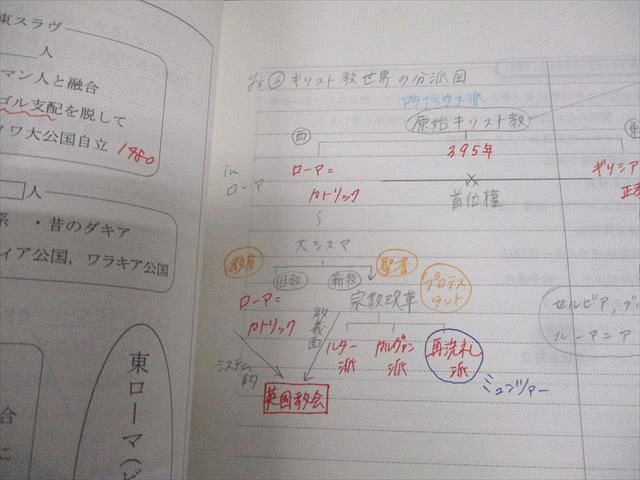 東スラヴ
人
マン人と融合
ゴル支配を脱して
クワ大公国自立 1480
人
系 ・昔のダキア
ィア公国, ワラキア公国
合
に
東ローマ(ビ
キリスト教世界の分派図
アタナシウス派
原始キリスト教
西
東
395年
in
ローマ
ローマ=
カトリック
ギリシア
正教
首位権
大シスマ
教皇
聖書
旧教
新教
プロテス
タント
ローマ=
カトリック
教義面
宗教改革
ルター
派
カルヴァン
派
再洗礼
派
システム
的
英国教会
ミュンツァー
セルビア,ブ
ルーマニア